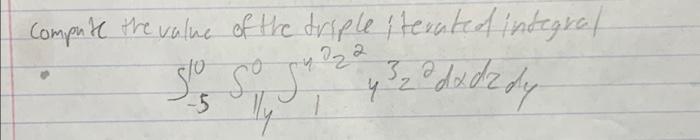 Compute the value of the triple iterated integral
• ∫_{-5}^{10} ∫_{1/y}^{0} ∫_{1}^{y^3z^2} y^3z^2 dxdzdy